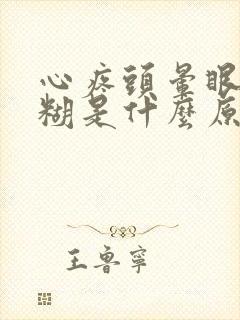 心疼頭暈眼
糊是什麼原
王魯寧